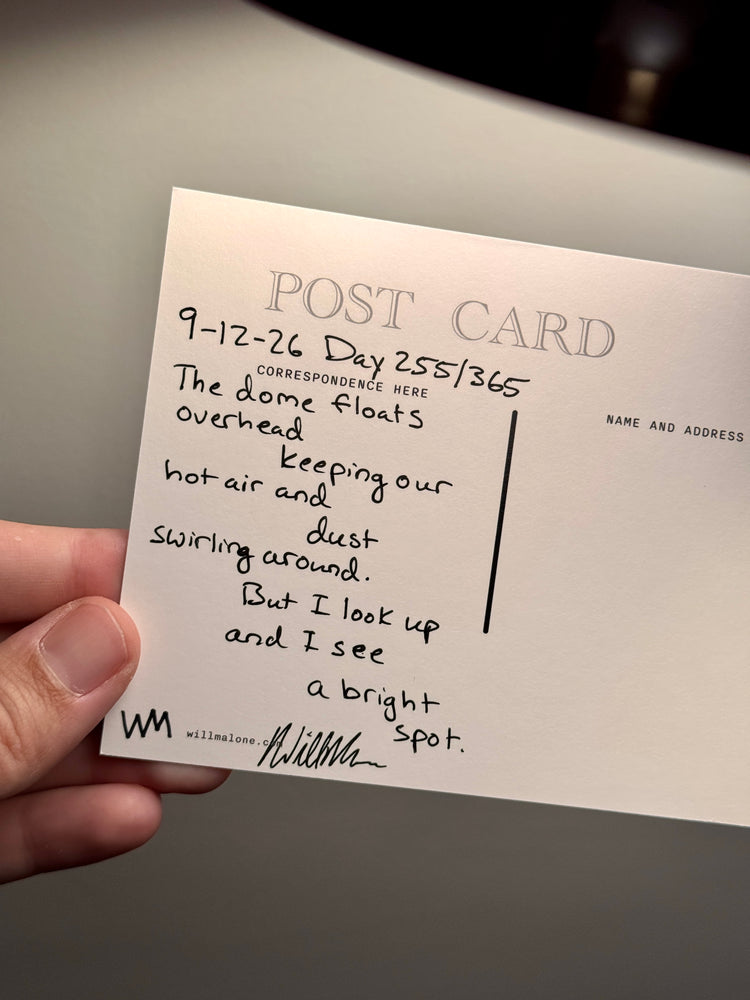 POST CARD
9-12-26 Day 255/365
CORRESPONDENCE HERE
The dome floats
overhead
keeping our
hot air and
dust
swirling around.
But I look up
and I see
a bright
spot.
WM willmalone.com
NAME AND ADDRESS